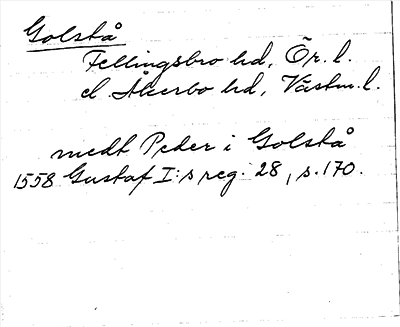 Golstå
Fellingsbro hd, Ör. l.
el. Åkerbo hd, Västm. l.
medt Peder i Golstå
1558 Gustaf I:s reg. 28, s. 170.